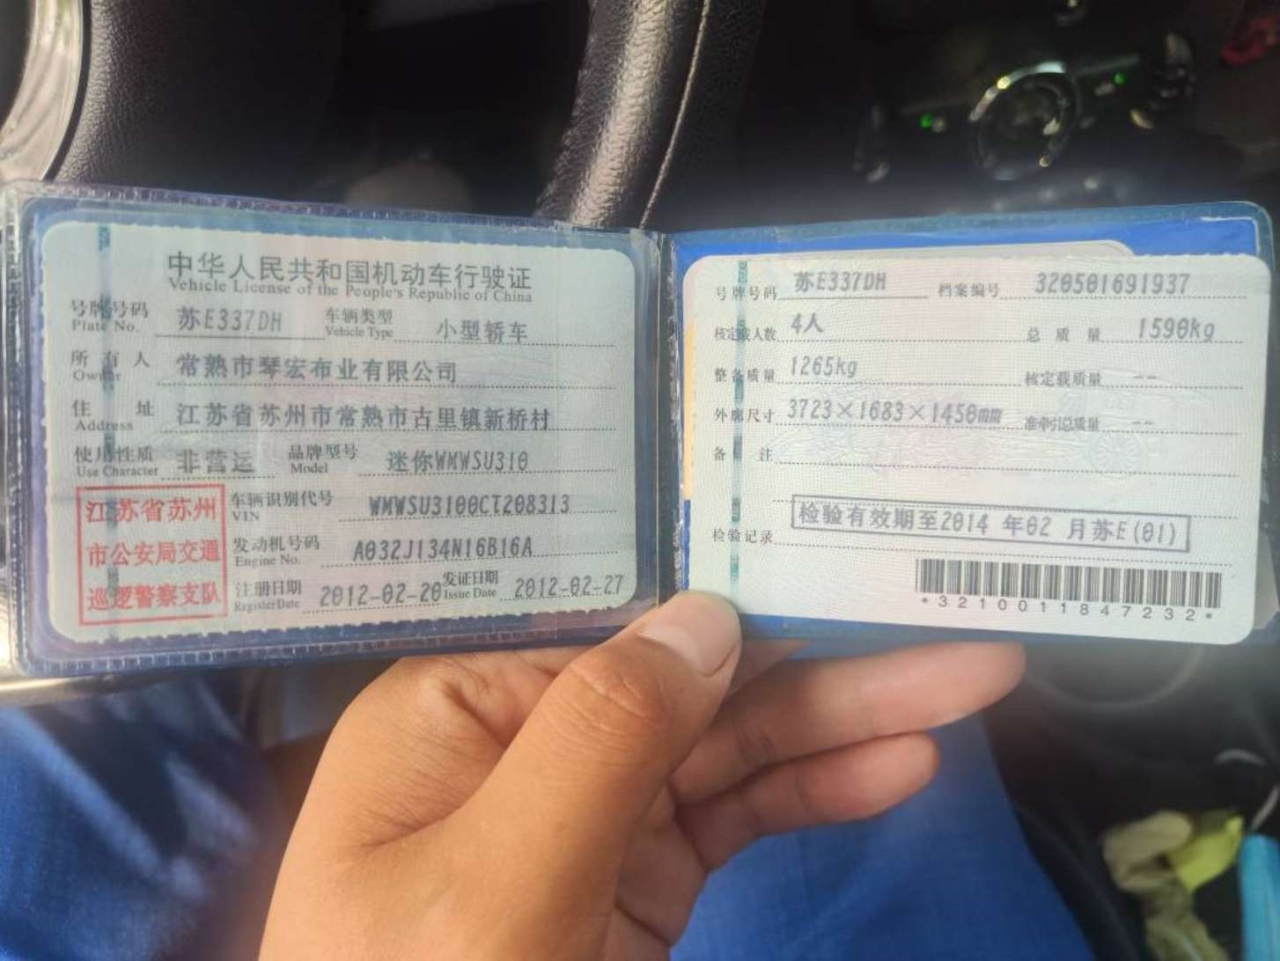 中华人民共和国机动车行驶证
Vehicle License of the People's Republic of China
号牌号码 苏E337DH 车辆类型 小型轿车
Plate No. Vehicle Type
所有人 常熟市琴宏布业有限公司
Owner
住址 江苏省苏州市常熟市古里镇新桥村
Address
使用性质 非营运 品牌型号 迷你WMWSU310
Use Character Model
江苏省苏州
市公安局交通
巡逻警察支队
车辆识别代号 WMWSU3100CT208313
VIN
发动机号码 A032J134N16B16A
Engine No.
注册日期 2012-02-20 发证日期 2012-02-27
Register Date Issue Date
号牌号码 苏E337DH 档案编号 320501691937
核定载人数 4人 总质量 1590kg
整备质量 1265kg 核定载质量 --
外廓尺寸 3723×1683×1450mm 准牵引总质量 --
备注
检验记录 检验有效期至2014 年02 月苏E(01)
*3210011847232*